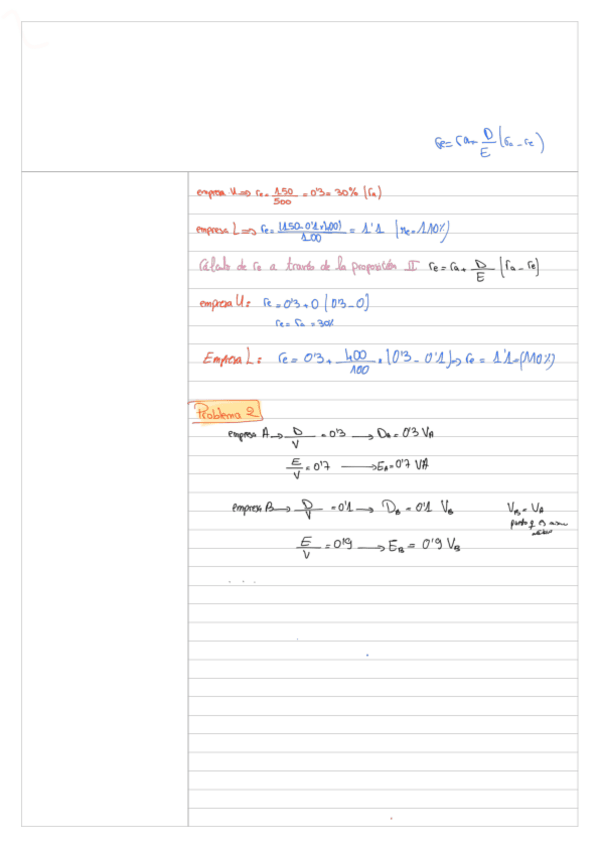 re = ra + D/E (ra - re)
empresa U => re = 150/500 = 0'3 = 30% (ra)
empresa L => re = (150 - 0'1 x 400)/100 = 1'1 (re = 110%)
Cálculo de re a través de la proposición II re = ra + D/E (ra - re)
empresa U: re = 0'3 + 0 (0'3 - 0)
re = ra = 30%
Empresa L: re = 0'3 + 400/100 · (0'3 - 0'1) => re = 1'1 = (110%)
Problema 2
empresa A -> D/V = 0'3 -> DA = 0'3 VA
E/V = 0'7 -> EA = 0'7 VA
empresa B -> D/V = 0'1 -> DB = 0'1 VB VB = VA
E/V = 0'9 -> EB = 0'9 VB
. . .